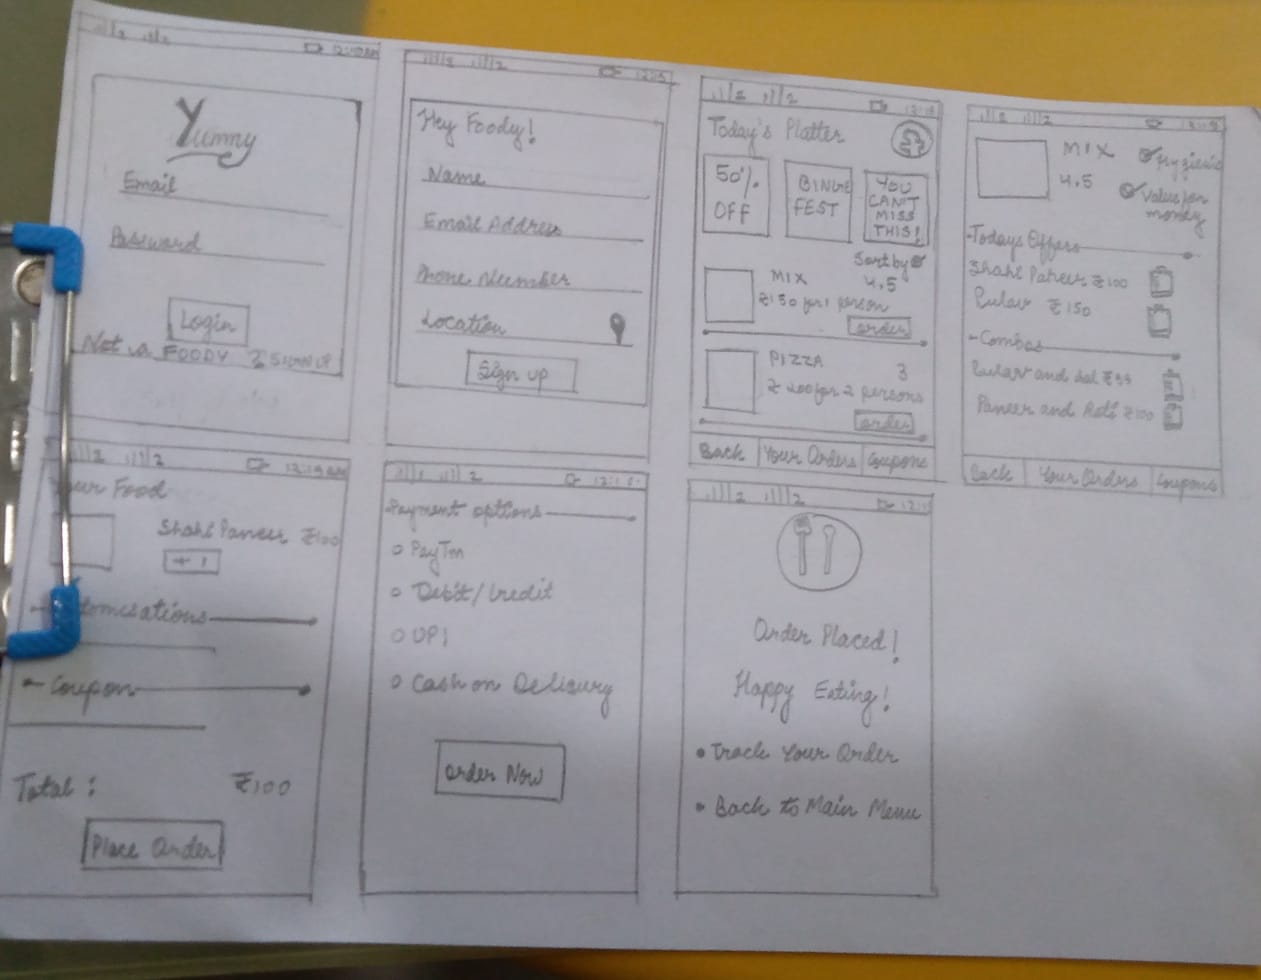 12:10 AM
Yummy
Email
Password
Login
Not a FOODY ? SIGN UP
12:15
Hey Foody!
Name
Email Address
Phone Number
Location
Sign up
Today's Platter
50% OFF
BINGE FEST
YOU CAN'T MISS THIS!
Sort by
MIX 4.5
₹150 for 1 person
order
PIZZA 3
₹200 for 2 persons
order
Back Your Orders Coupons
MIX Hygienic
4.5 Value for money
Todays Offers
Shahi Paneer ₹100
Pulav ₹150
Combos
Pulav and dal ₹99
Paneer and Roti ₹100
Back Your Orders Coupons
12:19 AM
Your Food
Shahi Paneer ₹100
+ 1
Coupon
Total : ₹100
Place Order
Payment options
PayTm
Debit/Credit
UPI
Cash on Delivery
Order Now
Order Placed!
Happy Eating!
Track Your Order
Back to Main Menu